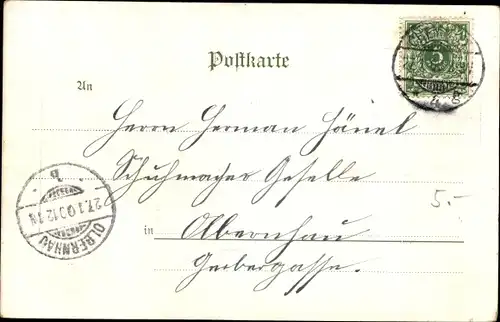 Postkarte
An
Herrn Herman Hänel
Schuhmacher Geselle
in Olbernhau
Gerbergasse.
5.-
5
27.1.00 12-1N
OLBERNHAU